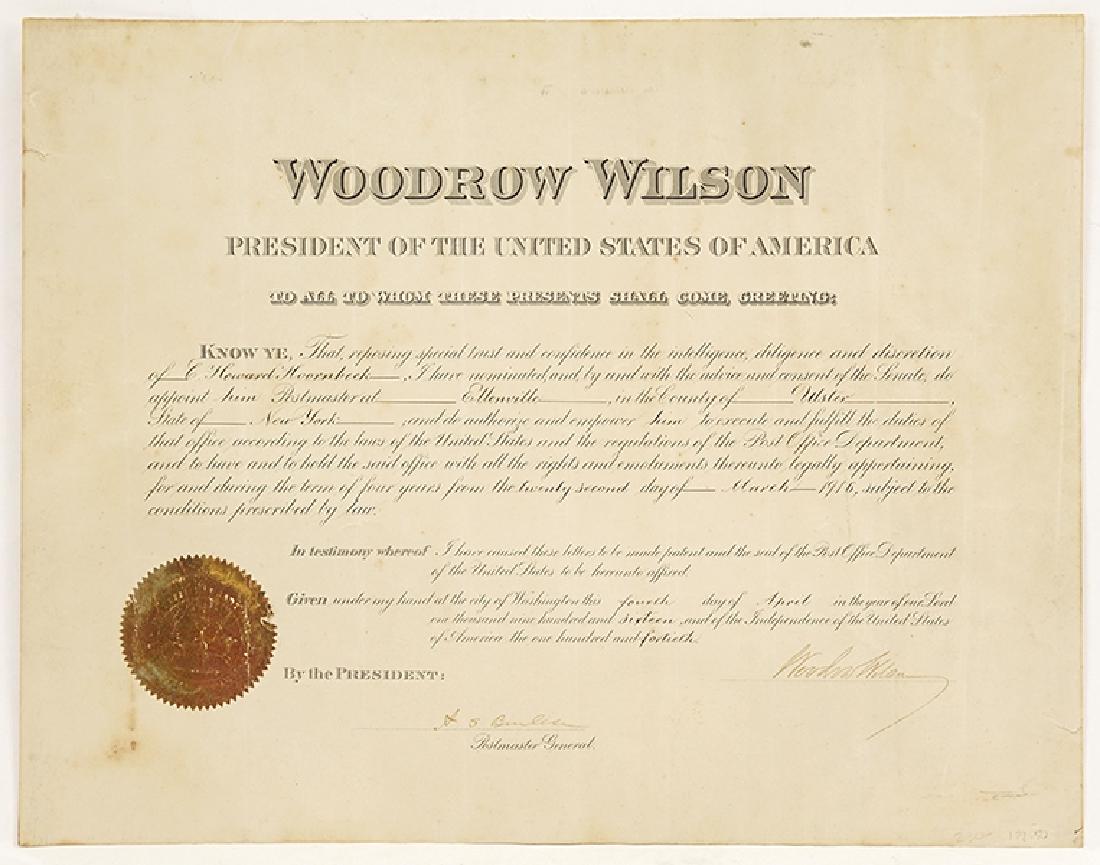 WOODROW WILSON
PRESIDENT OF THE UNITED STATES OF AMERICA
TO ALL TO WHOM THESE PRESENTS SHALL COME, GREETING:
KNOW YE, That, reposing special trust and confidence in the intelligence, diligence and discretion
of C Howard Hoornbeek, I have nominated, and, by and with the advice and consent of the Senate, do
appoint him Postmaster at Ellenville, in the County of Ulster,
State of New York, and do authorize and empower him to execute and fulfill the duties of
that office according to the laws of the United States and the regulations of the Post Office Department,
and to have and to hold the said office with all the rights and emoluments thereunto legally appertaining,
for and during the term of four years from the twenty second day of March 1916, subject to the
conditions prescribed by law.
In testimony whereof I have caused these letters to be made patent and the seal of the Post Office Department
of the United States to be hereunto affixed.
Given under my hand at the city of Washington this fourth day of April in the year of our Lord
one thousand nine hundred and sixteen, and of the Independence of the United States
of America the one hundred and fortieth.
By the PRESIDENT:
Woodrow Wilson
A S Burleson
Postmaster General.